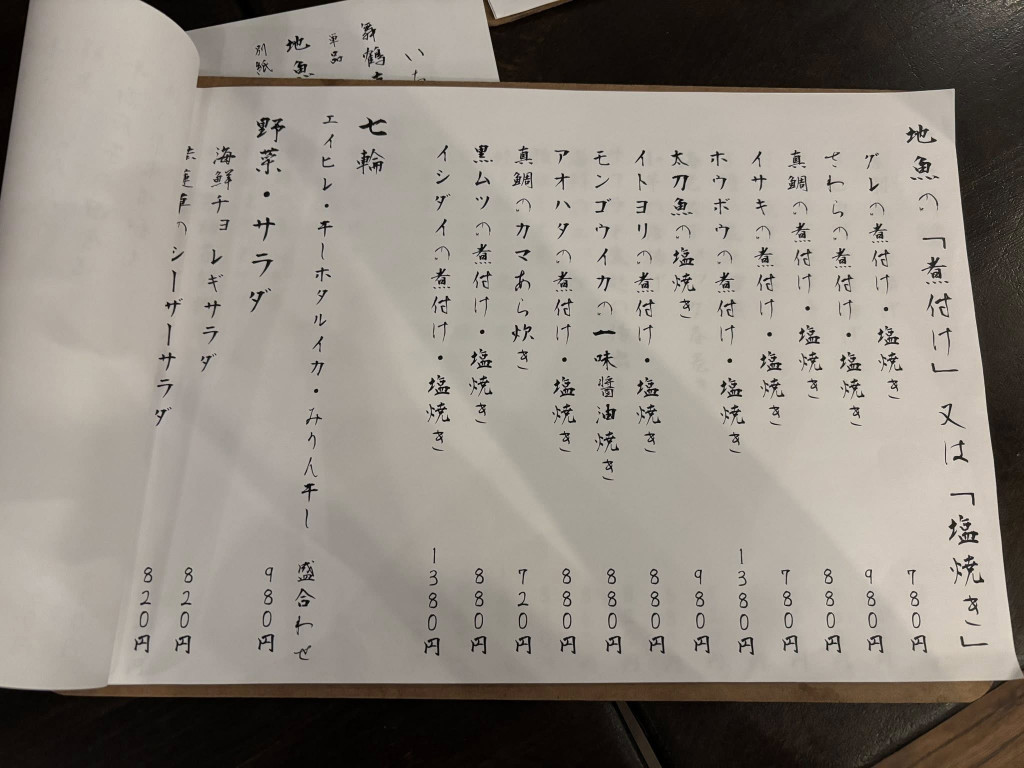 地魚の「煮付け」又は「塩焼き」
グレの煮付け・塩焼き 780円
さわらの煮付け・塩焼き 980円
真鯛の煮付け・塩焼き 880円
イサキの煮付け・塩焼き 780円
ホウボウの煮付け・塩焼き 1380円
太刀魚の塩焼き 980円
イトヨリの煮付け・塩焼き 880円
モンゴウイカの一味醤油焼き 880円
アオハタの煮付け・塩焼き 880円
真鯛のカマあら炊き 720円
黒ムツの煮付け・塩焼き 880円
イシダイの煮付け・塩焼き 1380円
七輪
エイヒレ・干しホタルイカ・みりん干し 盛合わせ 980円
野菜・サラダ
海鮮チョレギサラダ 820円
蓮草のシーザーサラダ 820円
舞鶴
単品
地魚
別紙